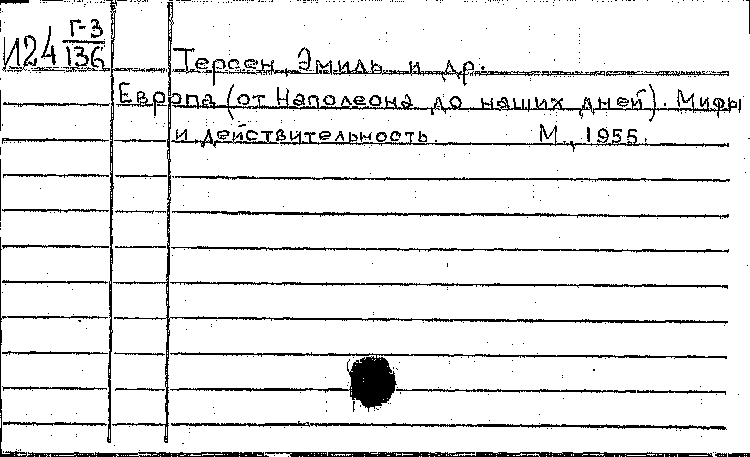 И24 Г-3/136
Терсен, Эмиль и др.
Европа (от Наполеона до наших дней). Мифы
и действительность. М., 1955.